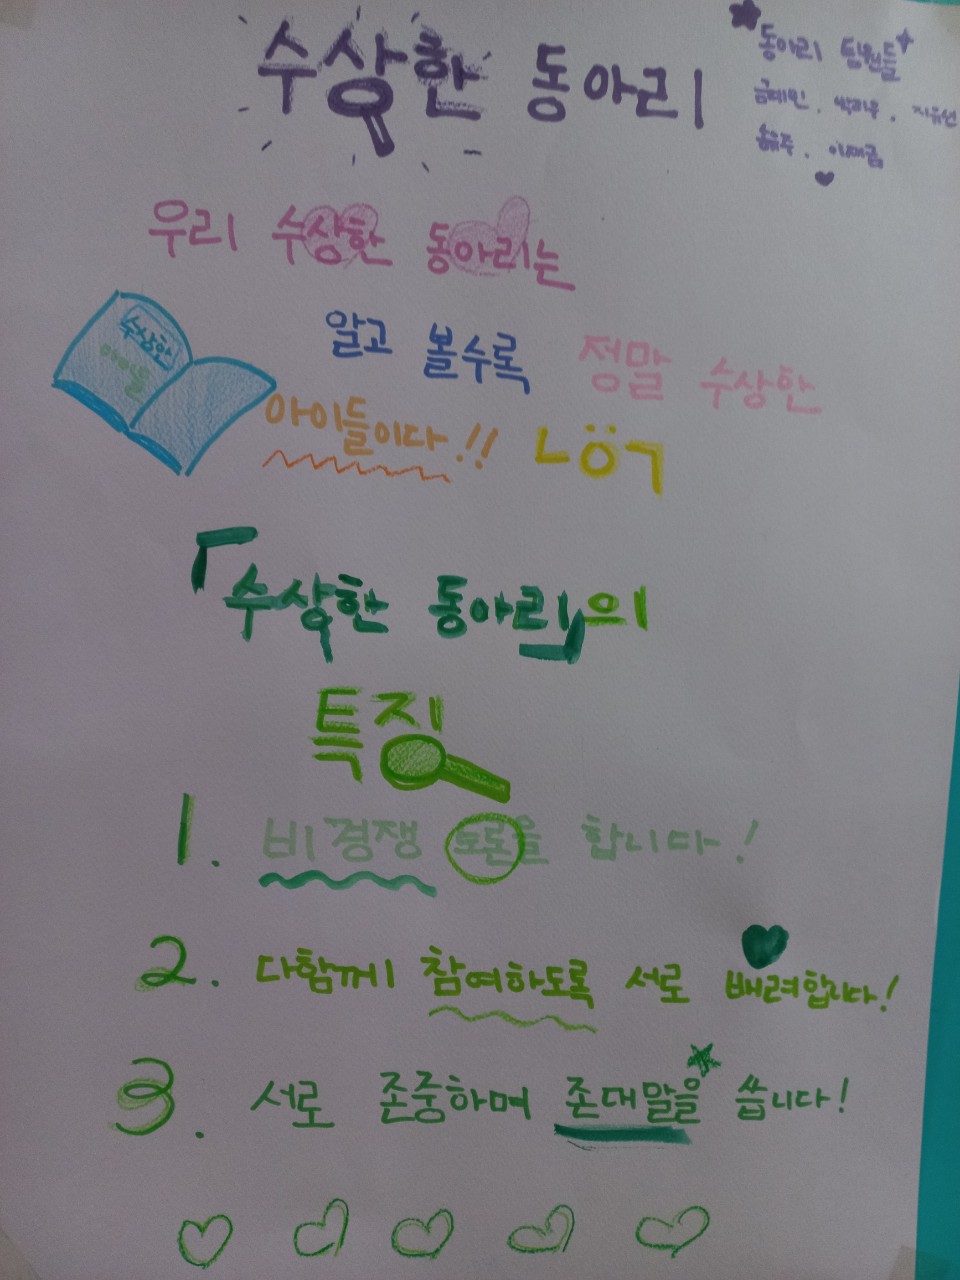 수상한 동아리
동아리 팀원들
우리 수상한 동아리는
알고 볼수록 정말 수상한
수상한
아이들
아이들이다!!
ㄴㅇㄱ
「수상한 동아리」의
특징
1. 비경쟁 토론을 합니다!
2. 다함께 참여하도록 서로 배려합니다!
3. 서로 존중하며 존대말을 씁니다!